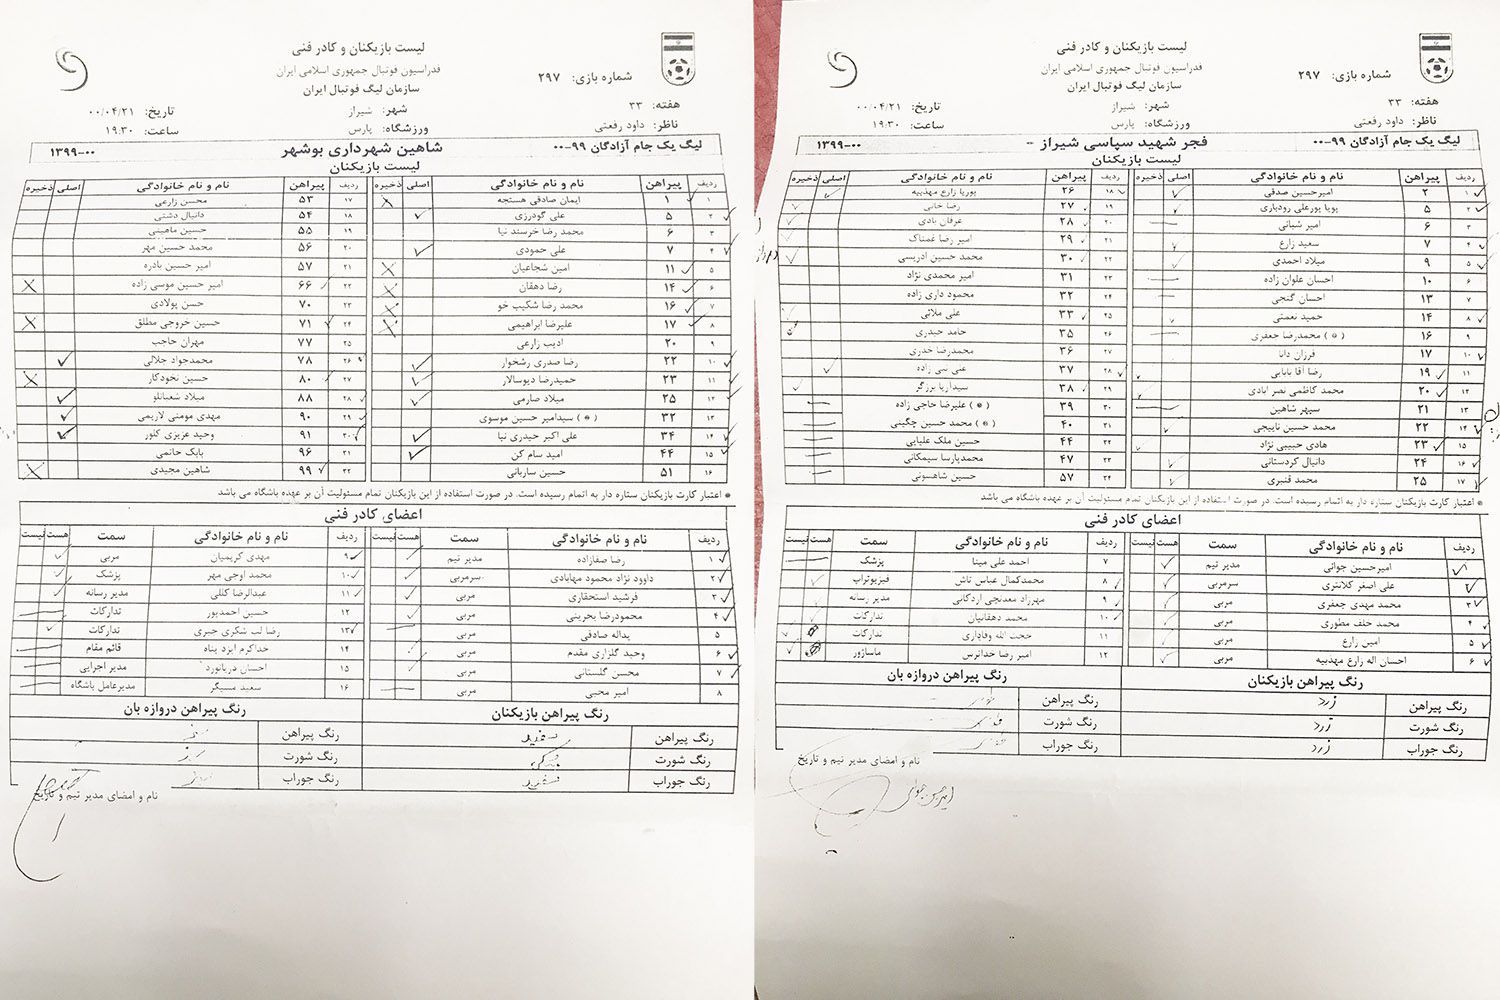 لیست بازیکنان و کادر فنی
فدراسیون فوتبال جمهوری اسلامی ایران
سازمان لیگ فوتبال ایران
شماره بازی: ۲۹۷
هفته: ۳۳ شهر: شیراز تاریخ: ۰۰/۰۴/۲۱
ناظر: داود رفعتی ورزشگاه: پارس ساعت: ۱۹:۳۰
لیگ یک جام آزادگان ۹۹-۰۰ فجر شهید سپاسی شیراز ۱۳۹۹-۰۰
لیست بازیکنان
ردیف پیراهن نام و نام خانوادگی اصلی ذخیره ردیف پیراهن نام و نام خانوادگی اصلی ذخیره
۱ ۲ امیرحسین صدقی ۱۸ ۲۶ پوریا زارع مهذبیه
۲ ۵ پویا پورعلی رودباری ۱۹ ۲۷ رضا خانی
۳ ۶ امیر شبانی ۲۰ ۲۸ عرفان بادی
۴ ۷ سعید زارع ۲۱ ۲۹ امیر رضا غمناک
۵ ۹ میلاد احمدی ۲۲ ۳۰ محمد حسین ادریسی
۶ ۱۰ احسان علوان زاده ۲۳ ۳۱ امیر محمدی نژاد
۷ ۱۳ احسان گنجی ۲۴ ۳۲ محمود داری زاده
۸ ۱۴ حمید نعمتی ۲۵ ۳۳ علی ملائی
۹ ۱۶ محمدرضا جعفری (*) ۲۶ ۳۵ حامد حیدری
۱۰ ۱۷ فرزان دانا ۲۷ ۳۶ محمدرضا خدری
۱۱ ۱۹ رضا آقا بابایی ۲۸ ۳۷ علی نبی زاده
۱۲ ۲۰ محمد کاظمی نصر ابادی ۲۹ ۳۸ سیداریا برزگر
۱۳ ۲۱ سپهر شاهین ۳۰ ۳۹ علیرضا حاجی زاده (*)
۱۴ ۲۲ محمد حسین تاییجی ۳۱ ۴۰ محمد حسین چگینی (*)
۱۵ ۲۳ هادی حبیبی نژاد ۳۲ ۴۴ حسین ملک علیایی
۱۶ ۲۴ دانیال کردستانی ۳۳ ۴۷ محمدپارسا سیمکانی
۱۷ ۲۵ محمد قنبری ۳۴ ۵۷ حسین شاهسونی
* اعتبار کارت بازیکنان ستاره دار به اتمام رسیده است. در صورت استفاده از این بازیکنان تمام مسئولیت آن بر عهده باشگاه می باشد
اعضای کادر فنی
ردیف نام و نام خانوادگی سمت هست نیست ردیف نام و نام خانوادگی سمت هست نیست
۱ امیرحسین جوانی مدیر تیم ۷ احمد علی مینا پزشک
۲ علی اصغر کلانتری سرمربی ۸ محمدکمال عباس تاش فیزیوتراپ
۳ محمد مهدی جعفری مربی ۹ مهرزاد معدنچی اردکانی مدیر رسانه
۴ محمد خلف مطوری مربی ۱۰ محمد دهقانیان تدارکات
۵ امین زارع مربی ۱۱ حجت الله وفاداری تدارکات
۶ احسان اله زارع مهذبیه مربی ۱۲ امیر رضا خداترس ماساژور
رنگ پیراهن بازیکنان رنگ پیراهن دروازه بان
رنگ پیراهن زرد رنگ پیراهن
رنگ شورت زرد رنگ شورت
رنگ جوراب زرد رنگ جوراب
نام و امضای مدیر تیم و تاریخ
امیرحسین جوانی
لیست بازیکنان و کادر فنی
فدراسیون فوتبال جمهوری اسلامی ایران
سازمان لیگ فوتبال ایران
شماره بازی: ۲۹۷
هفته: ۳۳ شهر: شیراز تاریخ: ۰۰/۰۴/۲۱
ناظر: داود رفعتی ورزشگاه: پارس ساعت: ۱۹:۳۰
لیگ یک جام آزادگان ۹۹-۰۰ شاهین شهرداری بوشهر ۱۳۹۹-۰۰
لیست بازیکنان
ردیف پیراهن نام و نام خانوادگی اصلی ذخیره ردیف پیراهن نام و نام خانوادگی اصلی ذخیره
۱ ۱ ایمان صادقی هستجه ۱۷ ۵۳ محسن زارعی
۲ ۵ علی گودرزی ۱۸ ۵۴ دانیال دشتی
۳ ۶ محمد رضا خرسند نیا ۱۹ ۵۵ حسین ماهینی
۴ ۷ علی حمودی ۲۰ ۵۶ محمد حسین مهر
۵ ۱۱ امین شجاعیان ۲۱ ۵۷ امیر حسین بادره
۶ ۱۴ رضا دهقان ۲۲ ۶۶ امیر حسین موسی زاده
۷ ۱۶ محمد رضا شکیب خو ۲۳ ۷۰ حسن پولادی
۸ ۱۷ علیرضا ابراهیمی ۲۴ ۷۱ حسین خروجی مطلق
۹ ۲۰ ادیب زارعی ۲۵ ۷۷ مهران حاجب
۱۰ ۲۲ رضا صدری رشخوار ۲۶ ۷۸ محمدجواد جلالی
۱۱ ۲۳ حمیدرضا دیوسالار ۲۷ ۸۰ حسین نخودکار
۱۲ ۲۵ میلاد صارمی ۲۸ ۸۸ میلاد شعبانلو
۱۳ ۳۲ سیدامیر حسین موسوی (*) ۲۹ ۹۰ مهدی مومنی لاریمی
۱۴ ۳۴ علی اکبر حیدری نیا ۳۰ ۹۱ وحید عزیزی کلور
۱۵ ۴۴ امید سام کن ۳۱ ۹۶ بابک حاتمی
۱۶ ۵۱ حسین ساربانی ۳۲ ۹۹ شاهین مجیدی
* اعتبار کارت بازیکنان ستاره دار به اتمام رسیده است. در صورت استفاده از این بازیکنان تمام مسئولیت آن بر عهده باشگاه می باشد
اعضای کادر فنی
ردیف نام و نام خانوادگی سمت هست نیست ردیف نام و نام خانوادگی سمت هست نیست
۱ رضا صفازاده مدیر تیم ۹ مهدی کریمیان مربی
۲ داوود نژاد محمود مهابادی سرمربی ۱۰ محمد اوجی مهر پزشک
۳ فرشید استحقاری مربی ۱۱ عبدالرضا کللی مدیر رسانه
۴ محمودرضا بحرینی مربی ۱۲ حسین احمدپور تدارکات
۵ یداله صادقی مربی ۱۳ رضا لب شکری جبری تدارکات
۶ وحید گلزاری مقدم مربی ۱۴ خداکرم ایزد پناه قائم مقام
۷ محسن گلستانی مربی ۱۵ احسان دریانورد مدیر اجرایی
۸ امیر محبی مربی ۱۶ سعید مسیگر مدیرعامل باشگاه
رنگ پیراهن بازیکنان رنگ پیراهن دروازه بان
رنگ پیراهن سفید رنگ پیراهن سبز
رنگ شورت مشکی رنگ شورت سبز
رنگ جوراب سفید رنگ جوراب سبز
نام و امضای مدیر تیم و تاریخ